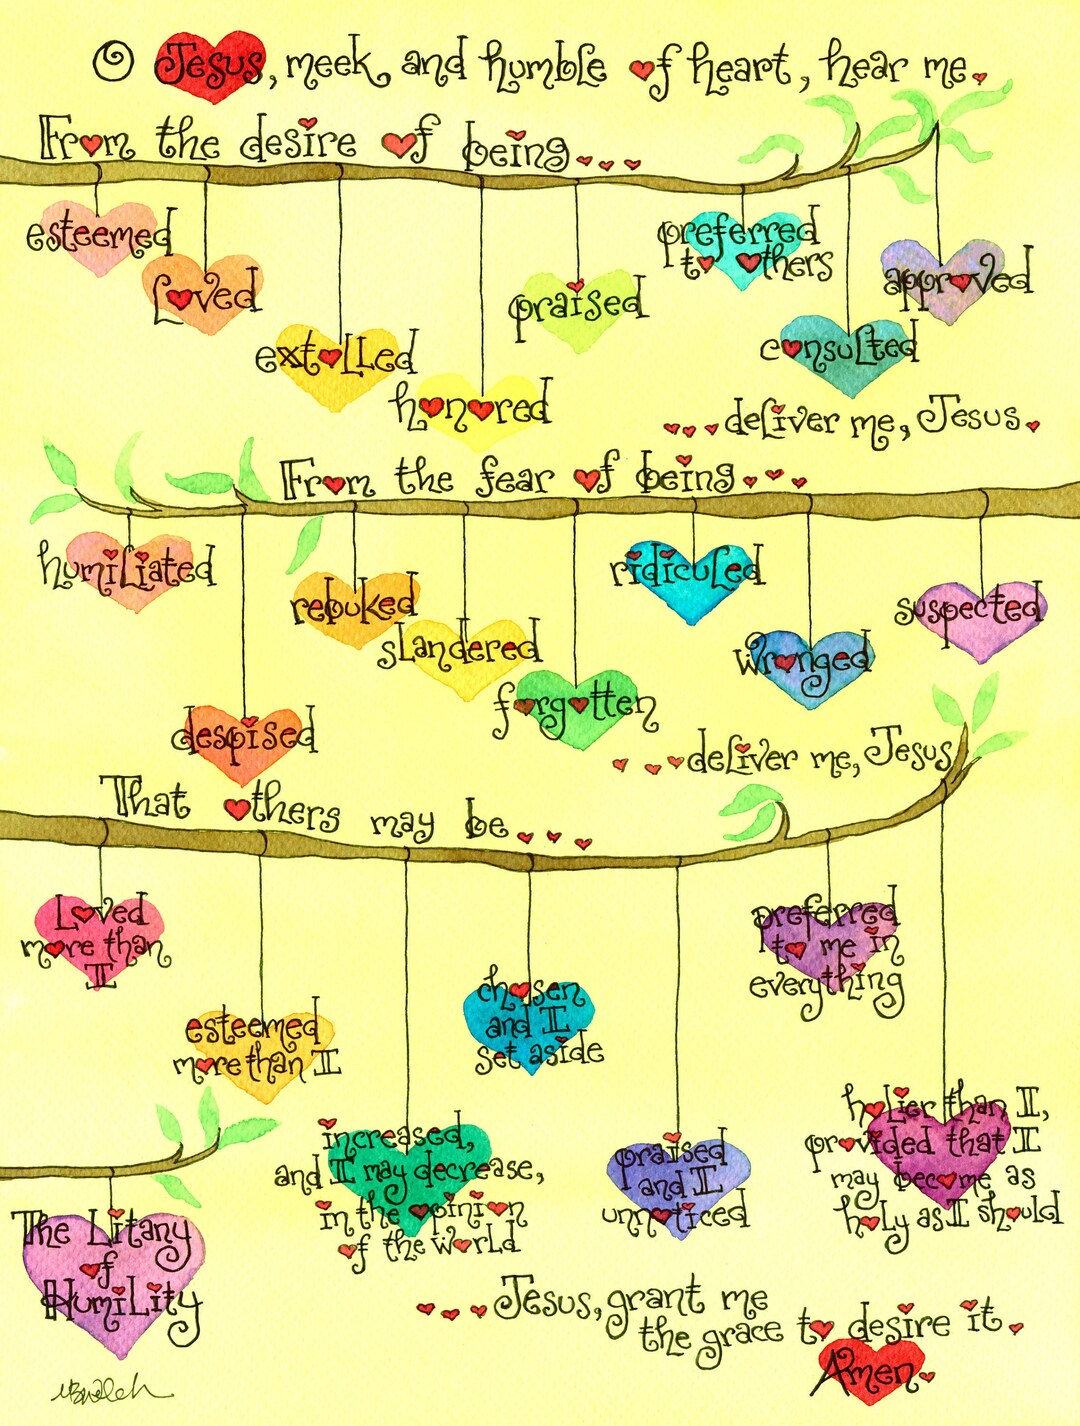 O Jesus, meek and humble of heart, hear me.
From the desire of being...
esteemed
Loved
extolled
honored
praised
preferred
to others
consulted
approved
...deliver me, Jesus.
From the fear of being...
humiliated
despised
rebuked
slandered
forgotten
ridiculed
wronged
suspected
...deliver me, Jesus
That others may be...
Loved
more than
I
esteemed
more than I
increased,
and I may decrease,
in the opinion
of the world
chosen
and I
set aside
praised
and I
unnoticed
preferred
to me in
everything
holier than I,
provided that I
may become as
holy as I should
...Jesus, grant me
the grace to desire it.
Amen.
The Litany
of
Humility